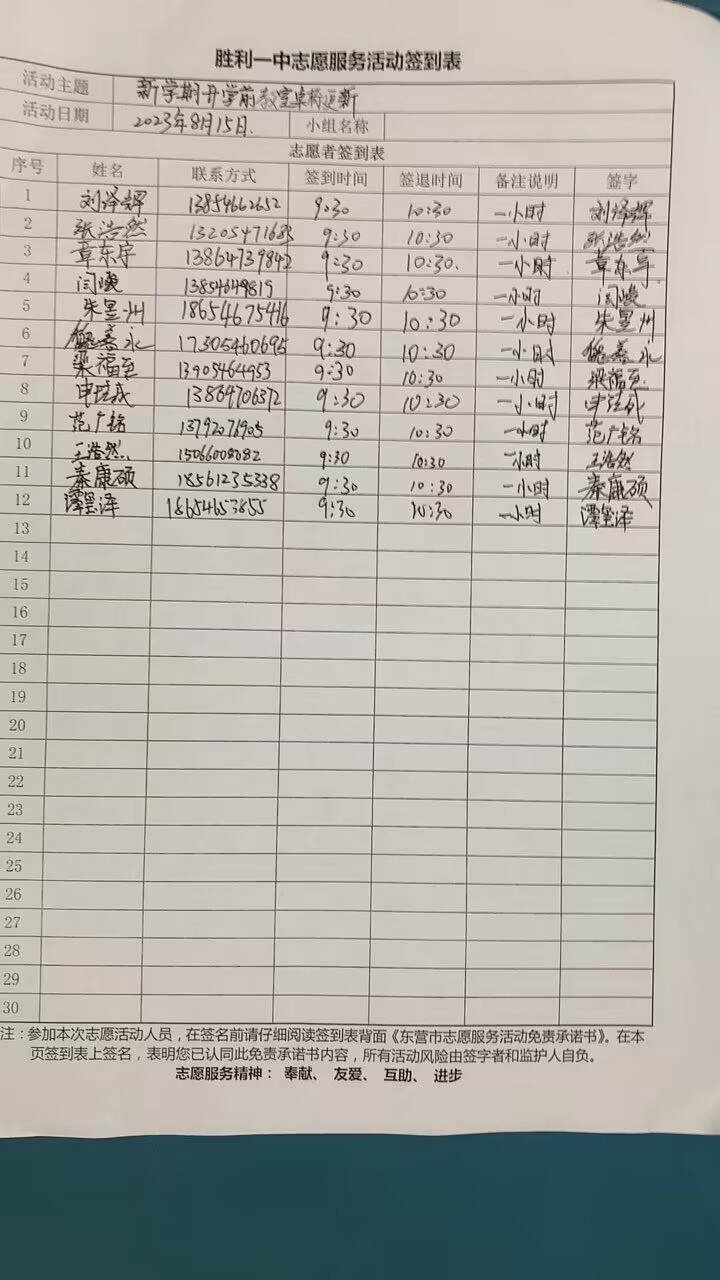 胜利一中志愿服务活动签到表
活动主题 新学期开学前教室桌椅更新
活动日期 2023年8月15日. 小组名称
志愿者签到表
序号 姓名 联系方式 签到时间 签退时间 备注说明 签字
1 刘泽辉 13854662652 9:30 10:30 一小时 刘泽辉
2 张浩然 13205471683 9:30 10:30 一小时 张浩然
3 章东宇 13864739842 9:30 10:30. 一小时 章东宇
4 闫峻 13854649819 9:30 10:30 一小时 闫峻
5 朱昱州 18654675416 9:30 10:30 一小时 朱昱州
6 魏善永 17305460695 9:30 10:30 一小时 魏善永
7 梁福至 13905464953 9:30 10:30 一小时 梁福至
8 13864706372 9:30 10:30 一小时
9 范广铭 13792076905 9:30 10:30 一小时 范广铭
10 王浩然 15066008082 9:30 10:30 一小时 王浩然
11 秦康硕 18561235338 9:30 10:30 一小时 秦康硕
12 谭玺泽 18654653855 9:30 10:30 一小时 谭玺泽
13
14
15
16
17
18
19
20
21
22
23
24
25
26
27
28
29
30
注：参加本次志愿活动人员，在签名前请仔细阅读签到表背面《东营市志愿服务活动免责承诺书》。在本
页签到表上签名，表明您已认同此免责承诺书内容，所有活动风险由签字者和监护人自负。
志愿服务精神： 奉献、 友爱、 互助、 进步